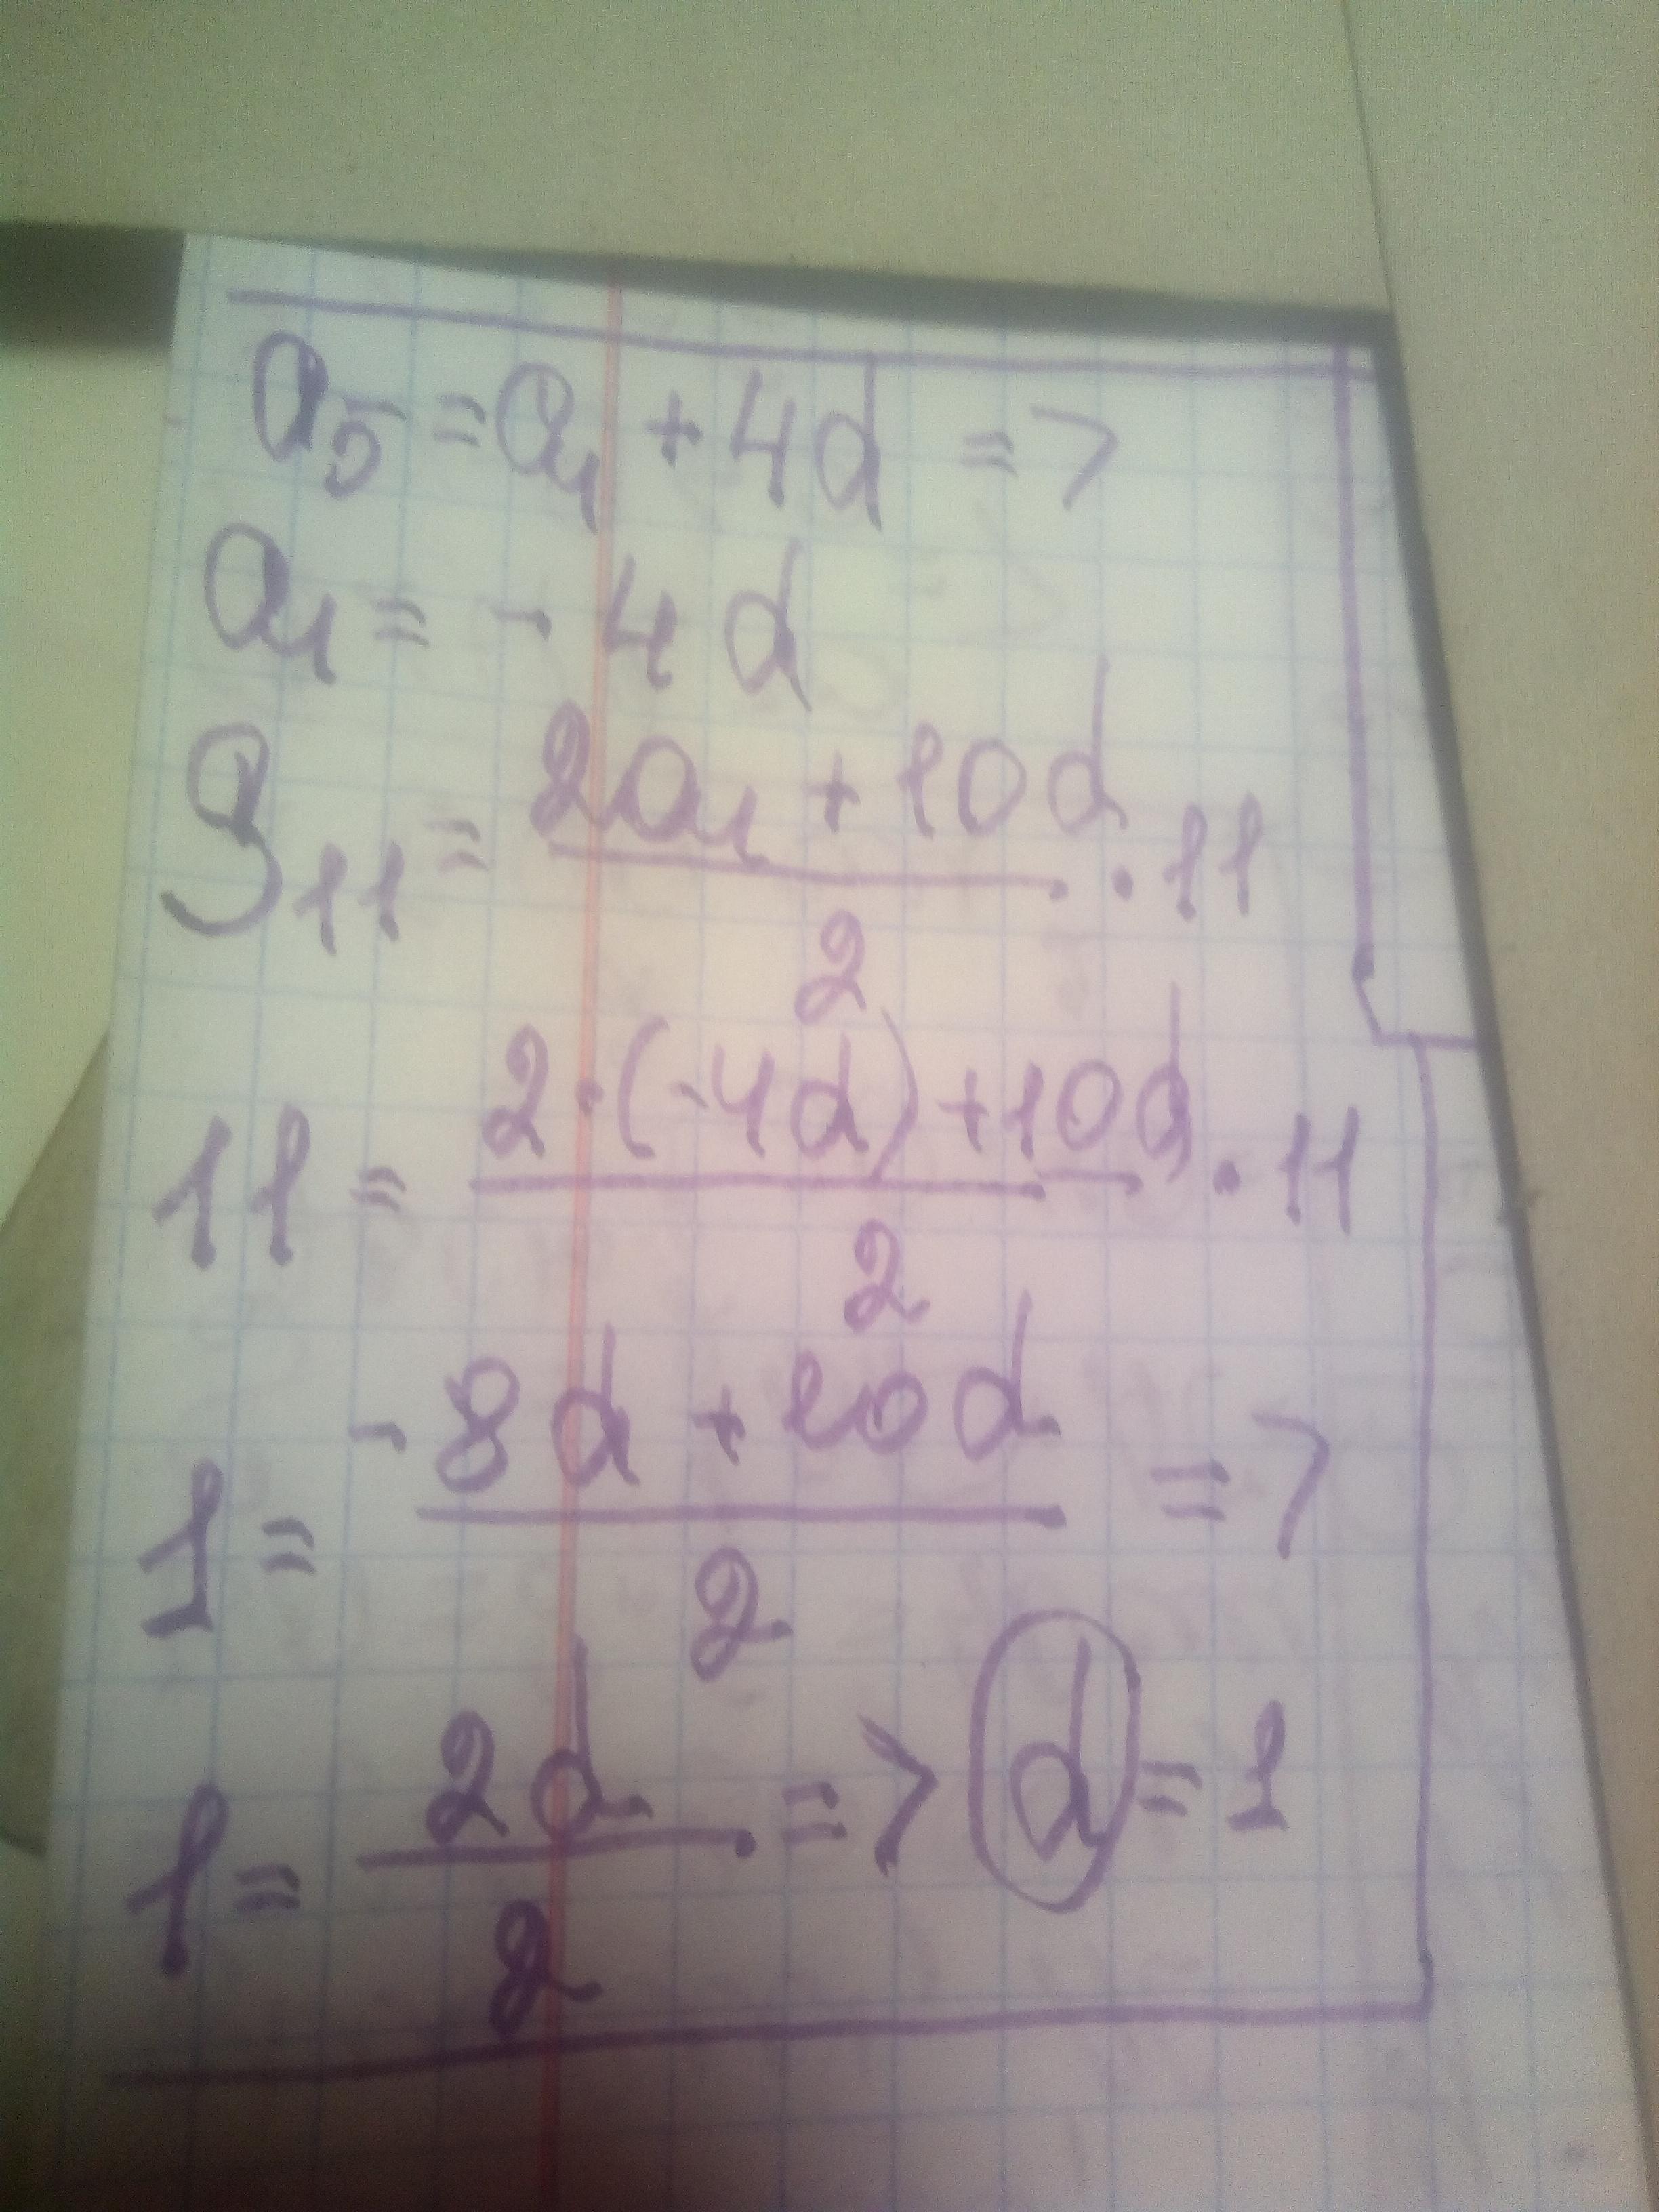 a₅ = a₁ + 4d =>
a₁ = - 4d
S₁₁ = (2a₁ + 10d)/2 · 11
11 = (2·(-4d) + 10d)/2 · 11
1 = (-8d + 10d)/2 =>
1 = 2d/2 => d = 1